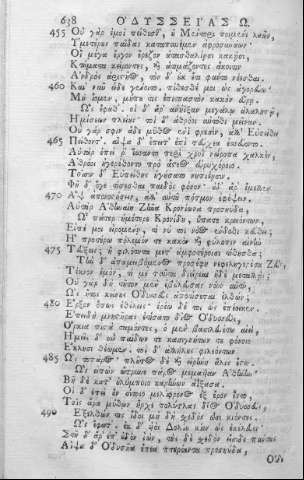 638 ΟΔΥΣΣΕΙΑΣ Ω.
455 Οὐ γὰρ ἐμοὶ πείθεσθ', οὐ Μέντορι ποιμένι λαῶν,
Ὑμετέρους παῖδας καταπαυέμεν ἀφροσυνάων·
Οἳ μέγα ἔργον ἔρεξαν ἀτασθαλίῃσι κακῇσι,
Κτήματα κείροντες, καὶ ἀτιμάζοντες ἄκοιτιν
Ἀνδρὸς ἀριστῆος, τὸν δ' οὐκ ἔτι φάντο νέεσθαι.
460 Καὶ νῦν ὧδε γένοιτο· πίθεσθέ μοι ὡς ἀγορεύω·
Μὴ ἴομεν, μήπου τις ἐπίσπαστον κακὸν εὕρῃ.
Ὣς ἔφαθ'. οἱ δ' ἄρ' ἀνήϊξαν μεγάλῳ ἀλαλητῷ,
Ἡμίσεων πλείους· τοὶ δ' ἀθρόοι αὐτόθι μίμνον.
Οὐ γάρ σφιν ἅδε μῦθος ἐνὶ φρεσίν, ἀλλ' Εὐπείθει
465 Πείθοντ'. αἶψα δ' ἔπειτ' ἐπὶ τεύχεα ἐσσεύοντο.
Αὐτὰρ ἐπεί ῥ' ἕσσαντο περὶ χροῒ νώροπα χαλκὸν,
Ἀθρόοι ἠγερέθοντο πρὸ ἄστεος εὐρυχόροιο.
Τοῖσιν δ' Εὐπείθης ἡγήσατο νηπιέῃσι.
Φῆ δ' ὅγε τίσεσθαι παιδὸς φόνον· οὐδ' ἄρ' ἔμελλεν
470 Ἂψ ἀπονοστήσειν, ἀλλ' αὐτοῦ πότμον ἐφέψειν.
Αὐτὰρ Ἀθηναίη Ζῆνα Κρονίωνα προσηύδα,
Ὦ πάτερ ἡμέτερε Κρονίδη, ὕπατε κρειόντων,
Εἰπέ μοι εἰρομένῃ, τί νύ τοι νόος ἔνδοθι κεύθει;
Ἢ προτέρω πόλεμόν τε κακὸν καὶ φύλοπιν αἰνὴν
475 Τεύξεις; ἢ φιλότητα μετ' ἀμφοτέροισι τίθησθα;
Τὴν δ' ἀπαμειβόμενος προσέφη νεφεληγερέτα Ζεύς,
Τέκνον ἐμὸν, τί με ταῦτα διείρεαι ἠδὲ μεταλλᾷς;
Οὐ γὰρ δὴ τοῦτον μὲν ἐβούλευσας νόον αὐτὴ,
Ὡς ἤτοι κείνους Ὀδυσεὺς ἀποτίσεται ἐλθών;
480 Ἕρξον ὅπως ἐθέλεις· ἐρέω δέ τοι ὡς ἐπέοικεν.
Ἐπειδὴ μνηστῆρας ἐτίσατο δῖος Ὀδυσσεὺς,
Ὅρκια πιστὰ ταμόντες, ὁ μὲν βασιλευέτω αἰεὶ,
Ἡμεῖς δ' αὖ παίδων τε κασιγνήτων τε φόνοιο
Ἔκλησιν θέωμεν. τοὶ δ' ἀλλήλους φιλεόντων
485 Ὡς τὸ πάρος, πλοῦτος δὲ καὶ εἰρήνη ἅλις ἔστω.
Ὣς εἰπὼν ὤτρυνε πάρος μεμαυῖαν Ἀθήνην·
Βῆ δὲ κατ' οὐλύμποιο καρήνων ἀΐξασα.
Οἱ δ' ἐπεὶ οὖν σίτοιο μελίφρονος ἐξ ἔρον ἕντο,
Τοῖς ἄρα μύθων ἦρχε πολύτλας δῖος Ὀδυσσεὺς,
490 Ἐξελθών τις ἴδοι μὴ δὴ σχεδὸν ὦσι κιόντες.
Ὣς ἔφατ'. ἐκ δ' υἱὸς Δολίου κίεν ὡς ἐκέλευε·
Στῆ δ' ἄρ' ἐπ' οὐδὸν ἰὼν, τοὺς δὲ σχεδὸν ἔσιδε πάντας·
Αἶψα δ' Ὀδυσσῆα ἔπεα πτερόεντα προσηύδα,